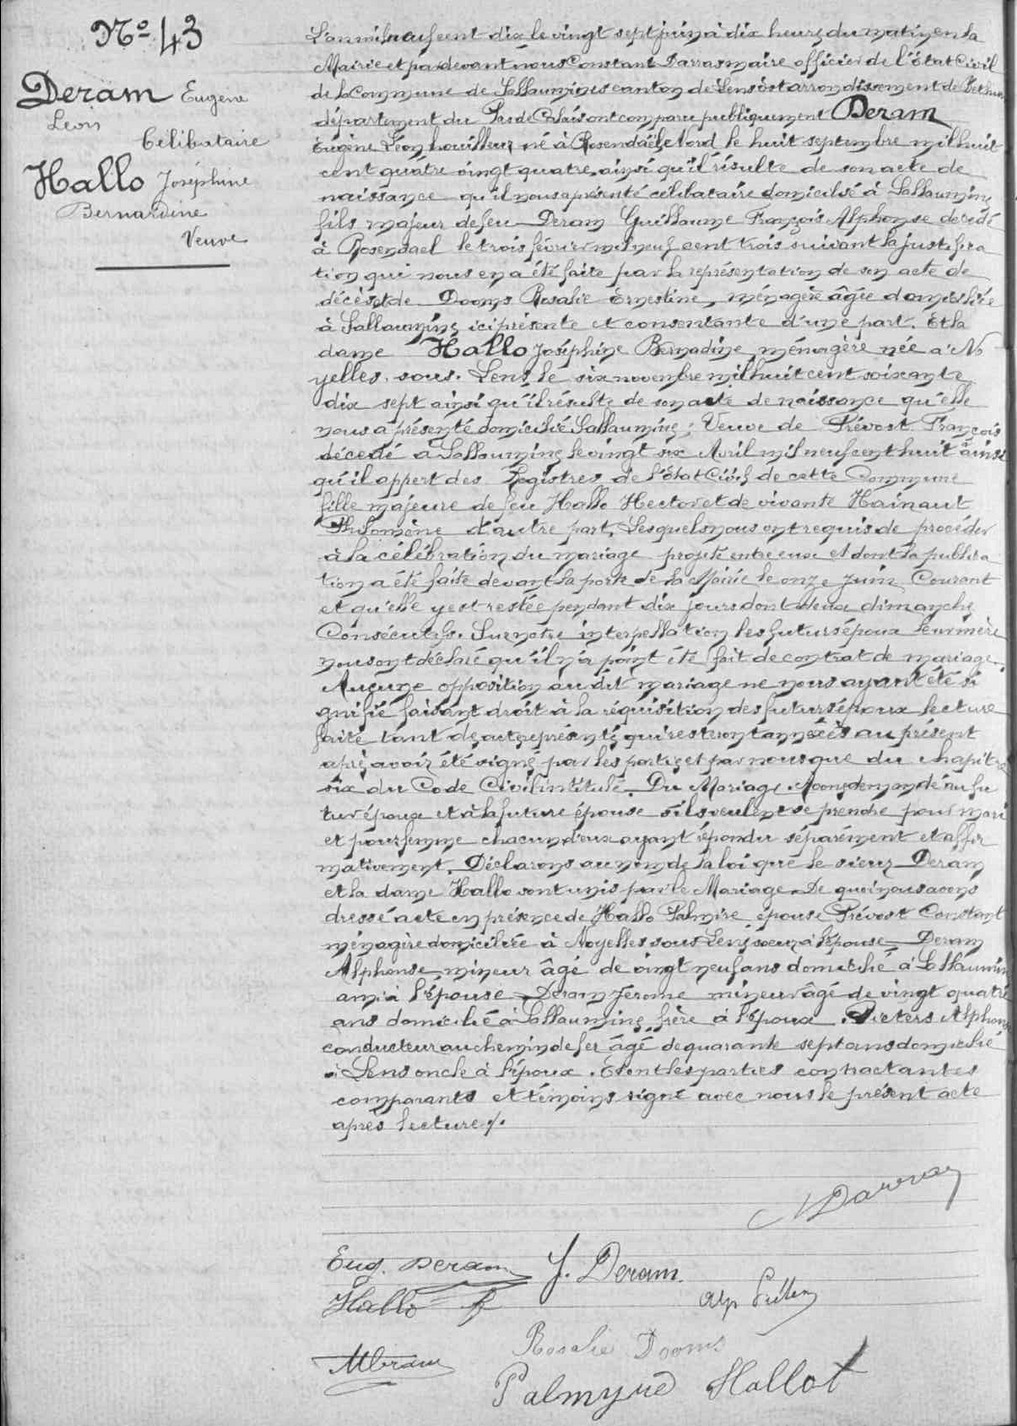 N° 43
Deram Eugène
Léon
Célibataire
Hallo Joséphine
Bernardine
Veuve
L'an mil neuf cent dix le vingt sept juin à dix heures du matin en la
Mairie et par devant nous Constant Darras maire officier de l'État Civil
de la Commune de Sallaumines canton de Lens Est arrondissement de Béthune
département du Pas de Calais ont comparu publiquement Deram
Eugène Léon houilleur né à Rosendaël Nord le huit septembre mil huit
cent quatre vingt quatre ainsi qu'il résulte de son acte de
naissance qu'il nous a présenté célibataire domicilié à Sallaumines
fils majeur de feu Deram Guillaume François Alphonse décédé
à Rosendael le trois février mil neuf cent trois suivant la justifica
tion qui nous en a été faite par la représentation de son acte de
décès et de Dooms Rosalie Ernestine, ménagère âgée domiciliée
à Sallaumines ici présente et consentante d'une part. Et la
dame Hallo Joséphine Bernadine ménagère née à No
yelles. sous. Lens, le six novembre mil huit cent soixante
dix sept ainsi qu'il résulte de son acte de naissance qu'elle
nous a présenté domiciliée Sallaumines; Veuve de Prévost François
décédé à Sallaumines le vingt six Avril mil neuf cent huit ainsi
qu'il appert des Registres de l'État Civil de cette Commune
fille majeure de feu Hallo Hector et de vivante Hainaut
Philomène d'autre part, Lesquels nous ont requis de procéder
à la célébration du mariage projeté entre eux et dont la publica
tion a été faite devant la porte de la Mairie le onze Juin Courant
et qu'elle y est restée pendant dix jours dont deux dimanches
Consécutifs. Sur notre interpellation les futurs époux leur mère
nous ont déclaré qu'il n'a point été fait de contrat de mariage.
Aucune opposition au dit mariage ne nous ayant été si
gnifié faisant droit à la réquisition des futurs époux lecture
faite tant des actes représentés qui resteront annexés au présent
après avoir été signé par les parties et par nous que du chapitre
six du Code Civil intitulé. Du Mariage. Avons demandé au fu
tur époux et à la future épouse s'ils veulent se prendre pour mari
et pour femme chacun d'eux ayant répondu séparément et affir
mativement. Déclarons au nom de la loi que le sieur Deram
et la dame Hallo sont unis par le Mariage. De quoi nous avons
dressé acte en présence de Hallo Palmire épouse Prévost Constant
ménagère domiciliée à Noyelles sous Lens sœur à l'épouse Deram
Alphonse, mineur âgé de vingt neuf ans domicilié à Sallaumines
ami à l'épouse Deram Jérome mineur âgé de vingt quatre
ans domicilié à Sallaumines frère à l'époux. Pieters Alphonse
conducteur au chemin de fer âgé de quarante sept ans domicilié
à Lens oncle à l'époux. Et ont les parties contractantes
comparants et témoins signé avec nous le présent acte
après lecture ./.
Eug. Deram J. Deram
Hallo
Rosalie Dooms
Palmyre Hallot